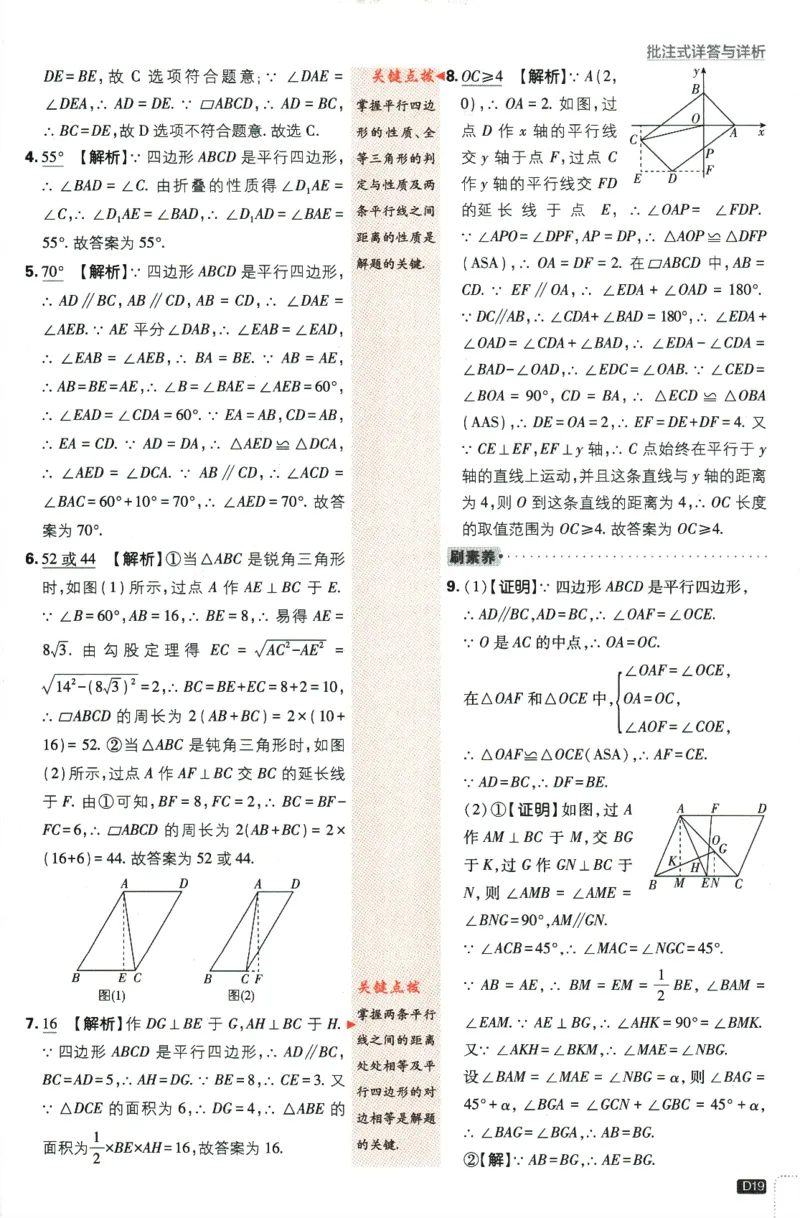 批注式详答与详析
DE=BE,故 C 选项符合题意;∵ ∠DAE=
∠DEA,∴ AD=DE. ∵ ▱ABCD,∴ AD=BC,
∴ BC=DE,故 D 选项不符合题意.故选 C.
4. 55° 【解析】∵ 四边形 ABCD 是平行四边形,
∴ ∠BAD=∠C. 由折叠的性质得∠D₁AE=
∠C,∴ ∠D₁AE=∠BAD,∴ ∠D₁AD=∠BAE=
55°. 故答案为 55°.
5. 70° 【解析】∵ 四边形 ABCD 是平行四边形,
∴ AD∥BC,AB∥CD,AB=CD,∴ ∠DAE=
∠AEB. ∵ AE 平分∠DAB,∴ ∠EAB=∠EAD,
∴ ∠EAB=∠AEB,∴ BA=BE. ∵ AB=AE,
∴ AB=BE=AE,∴ ∠B=∠BAE=∠AEB=60°,
∴ ∠EAD=∠CDA=60°. ∵ EA=AB,CD=AB,
∴ EA=CD. ∵ AD=DA,∴ △AED≌△DCA,
∴ ∠AED=∠DCA. ∵ AB∥CD,∴ ∠ACD=
∠BAC=60°+10°=70°,∴ ∠AED=70°. 故答
案为 70°.
6. 52 或 44 【解析】①当△ABC 是锐角三角形
时,如图(1)所示,过点 A 作 AE⊥BC 于 E.
∵ ∠B=60°,AB=16,∴ BE=8,∴ 易得 AE=
8√3. 由勾股定理得 EC=√(AC²-AE²)=
√(14²-(8√3)²)=2,∴ BC=BE+EC=8+2=10,
∴ ▱ABCD 的周长为 2(AB+BC)=2×(10+
16)=52. ②当△ABC 是钝角三角形时,如图
(2)所示,过点 A 作 AF⊥BC 交 BC 的延长线
于 F. 由①可知,BF=8,FC=2,∴ BC=BF-
FC=6,∴ ▱ABCD 的周长为 2(AB+BC)=2×
(16+6)=44. 故答案为 52 或 44.
A D A D
B E C B C F
图(1) 图(2)
7. 16 【解析】作 DG⊥BE 于 G,AH⊥BC 于 H.
∵ 四边形 ABCD 是平行四边形,∴ AD∥BC,
BC=AD=5,∴ AH=DG. ∵ BE=8,∴ CE=3. 又
∵ △DCE 的面积为 6,∴ DG=4,∴ △ABE 的
面积为 1/2×BE×AH=16,故答案为 16.
关键点拨
掌握平行四边
形的性质、全
等三角形的判
定与性质及两
条平行线之间
距离的性质是
解题的关键.
关键点拨
掌握两条平行
线之间的距离
处处相等及平
行四边形的对
边相等是解题
的关键.
8. OC≥4 【解析】∵ A(2,
0),∴ OA=2. 如图,过
点 D 作 x 轴的平行线
交 y 轴于点 F,过点 C
作 y 轴的平行线交 FD
的延长线于点 E,∴ ∠OAP=∠FDP.
y
B
O A x
C
P
E D F
∵ ∠APO=∠DPF,AP=DP,∴ △AOP≌△DFP
(ASA),∴ OA=DF=2. 在▱ABCD 中,AB=
CD. ∵ EF∥OA,∴ ∠EDA+∠OAD=180°.
∵ DC∥AB,∴ ∠CDA+∠BAD=180°,∴ ∠EDA+
∠OAD=∠CDA+∠BAD,∴ ∠EDA-∠CDA=
∠BAD-∠OAD,∴ ∠EDC=∠OAB. ∵ ∠CED=
∠BOA=90°,CD=BA,∴ △ECD≌△OBA
(AAS),∴ DE=OA=2,∴ EF=DE+DF=4. 又
∵ CE⊥EF,EF⊥y 轴,∴ C 点始终在平行于 y
轴的直线上运动,并且这条直线与 y 轴的距离
为 4,则 O 到这条直线的距离为 4,∴ OC 长度
的取值范围为 OC≥4. 故答案为 OC≥4.
刷素养
9. (1)【证明】∵ 四边形 ABCD 是平行四边形,
∴ AD∥BC,AD=BC,∴ ∠OAF=∠OCE.
∵ O 是 AC 的中点,∴ OA=OC.
∠OAF=∠OCE,
在△OAF 和△OCE 中,{OA=OC,
∠AOF=∠COE,
∴ △OAF≌△OCE(ASA),∴ AF=CE.
∵ AD=BC,∴ DF=BE.
(2)①【证明】如图,过 A
作 AM⊥BC 于 M,交 BG
于 K,过 G 作 GN⊥BC 于
N,则 ∠AMB=∠AME=
∠BNG=90°,AM∥GN.
A F D
O
G
K H
B M E N C
∵ ∠ACB=45°,∴ ∠MAC=∠NGC=45°.
∵ AB=AE,∴ BM=EM=1/2 BE,∠BAM=
∠EAM. ∵ AE⊥BG,∴ ∠AHK=90°=∠BMK.
又∵ ∠AKH=∠BKM,∴ ∠MAE=∠NBG.
设∠BAM=∠MAE=∠NBG=α,则∠BAG=
45°+α,∠BGA=∠GCN+∠GBC=45°+α,
∴ ∠BAG=∠BGA,∴ AB=BG.
②【解】∵ AB=BG,∴ AE=BG.
D19